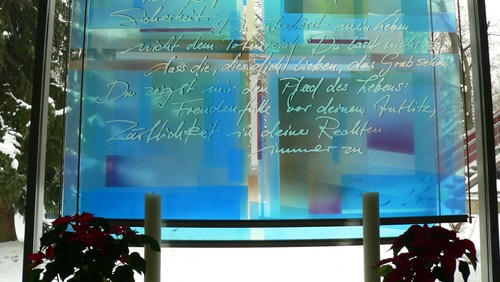 Sicherheit. Du überlässt mein Leben
nicht dem Totenreich. Du lässt nicht zu,
dass die, die dich lieben, das Grab sehen.
Du zeigst mir den Pfad des Lebens:
Freudenfülle vor deinem Antlitz,
Zärtlichkeit in deiner Rechten
immer zu.